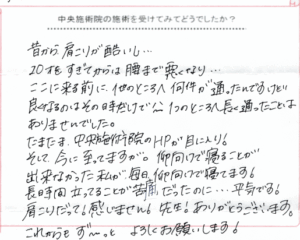 中央施術院の施術を受けてみてどうでしたか？
昔から肩こりが酷いし…
20才をすぎてからは腰まで悪くなり…
ここに来る前に、他のところへ何件か通ったんですけど
良くなるのはその時だけで〜 1つのところへ長く通ったことは
ありませんでした。
たまたま、中央施術院のHPが目に入り！
そして、今に至ってますが、仰向けで寝ることが
出来なかった私が毎日、仰向けで寝てます！
長時間立ってることが苦痛だったのに…平気です！
肩こりだって！感じません！先生！ありがとうございます。
これからもず〜っと よろしくお願いします！